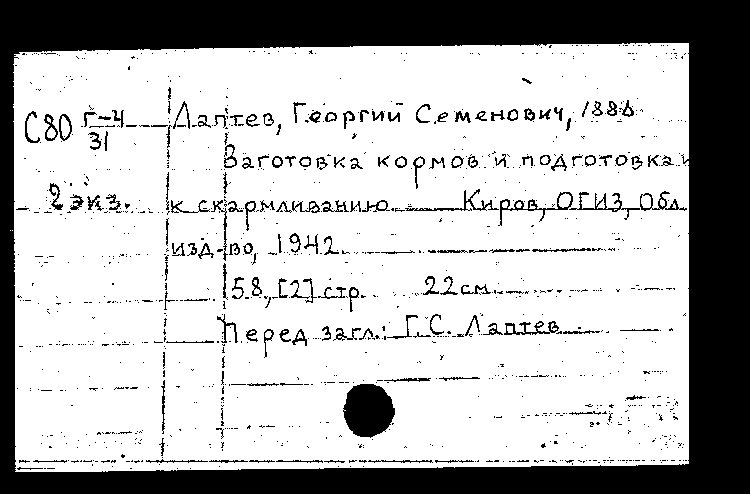 С80 Г-4/31 Лаптев, Георгий Семенович,
Заготовка кормов и подготовка
2 экз. к скармливанию. Киров, ОГИЗ, Обл.
изд-во, 1942.
58, [2] стр. 22 см.
Перед загл.: Г. С. Лаптев.